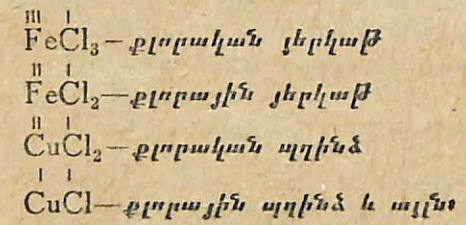 III I
FeCl₃—քլորական յերկաթ
II I
FeCl₂—քլորային յերկաթ
II I
CuCl₂—քլորական պղինձ
I I
CuCl—քլորային պղինձ և այլն։